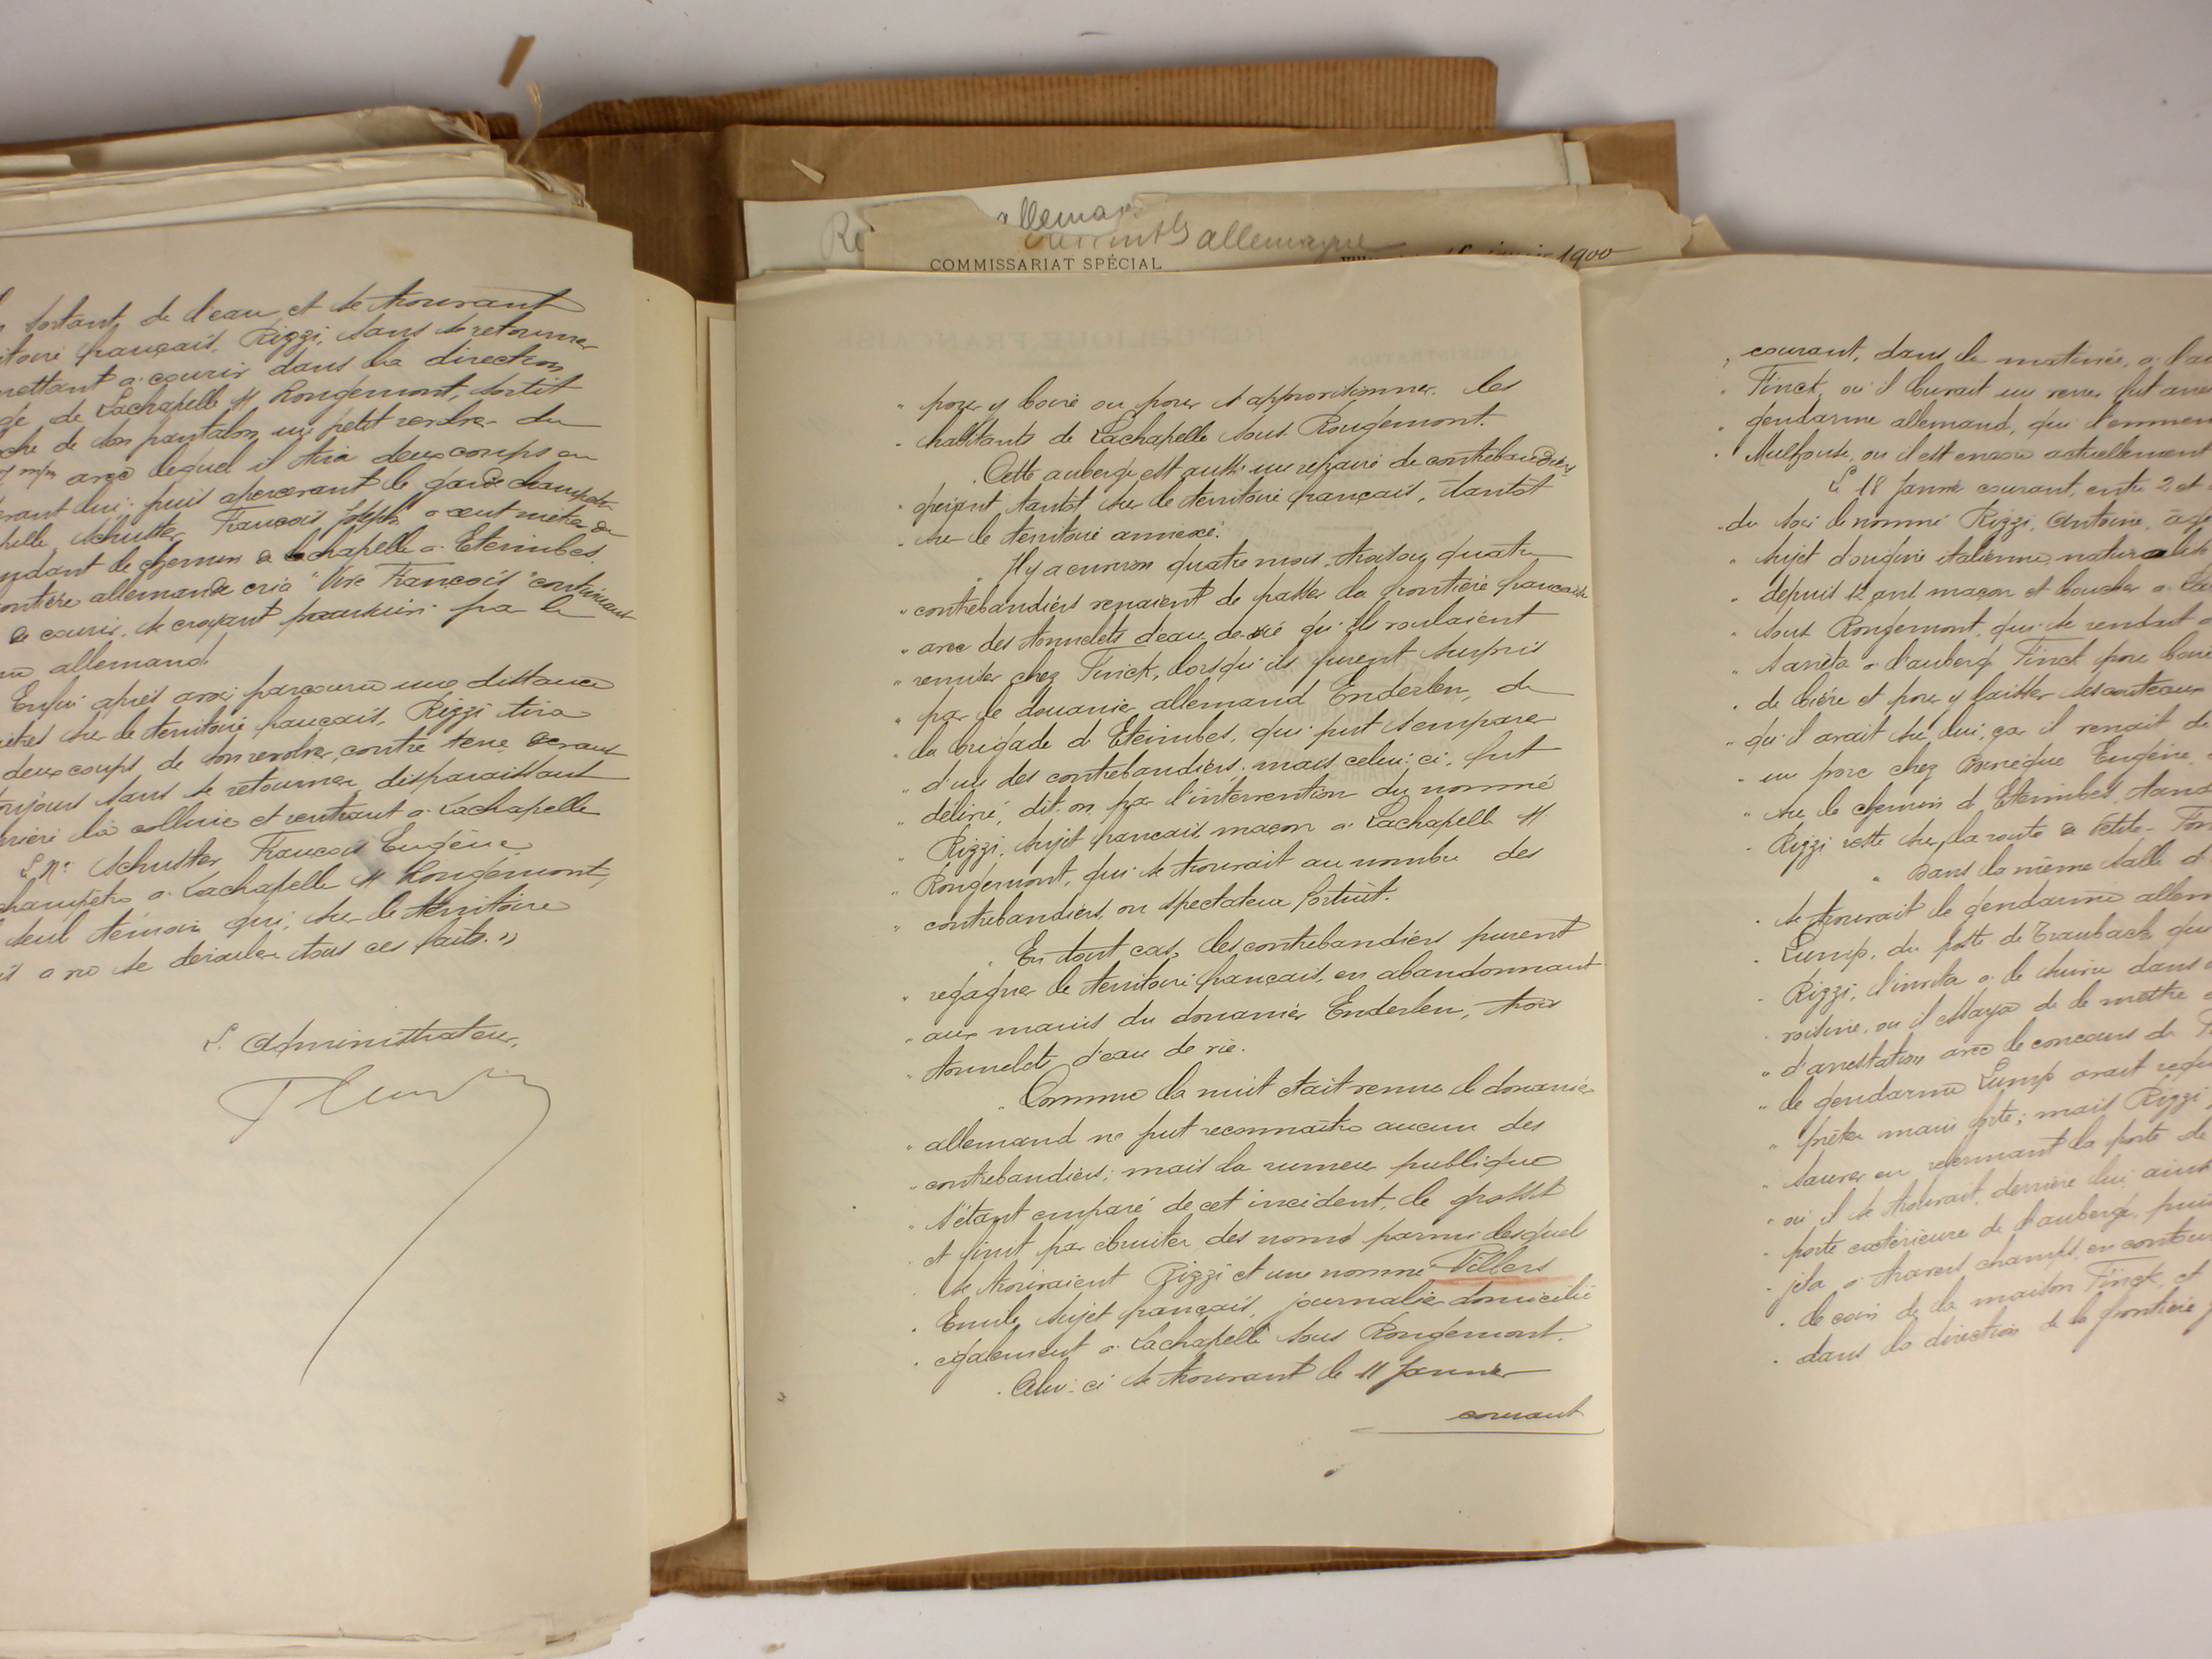 allemag
allemagne
COMMISSARIAT SPÉCIAL
1900
sortant de l'eau et se trouvant
français, Rizzi, sans se retourner
mettant à courir dans la direction
de Lachapelle s/s Rougemont, sortit
de son pantalon, un petit revolver du
avec lequel il tira deux coups en
lui: puis apercevant le garde champêtre
Schuster, François Joseph à cent mètres
le chemin de Lachapelle à Eteimbes.
allemande cria "Vive François" continuant
de courir, se croyant poursuivi par le
allemand.
Enfin après avoir parcouru une distance
sur le territoire français, Rizzi tira
deux coups de son revolver, contre terre devant
toujours sans se retourner, disparaissant
la colline et rentrant à Lachapelle
Le Né Schuster François Eugène
champêtre à Lachapelle s/s Rougemont,
seul témoin qui, sur le territoire
a vu se dérouler tous ces faits. »
L'Administrateur,
" pour y boire ou pour s'approvisionner les
" habitants de Lachapelle sous Rougemont.
" Cette auberge est aussi un repaire de contrebandiers
" opérant tantôt sur le territoire français, tantôt
" sur le territoire annexé.
" Il y a environ quatre mois, trois ou quatre
" contrebandiers venaient de passer la frontière française
" avec des tonnelets d'eau-de-vie qu'ils roulaient
" remiser chez Finck, lorsqu'ils furent surpris
" par le douanier allemand Enderlen, de
" la brigade d'Eteimbes, qui put s'emparer
" d'un des contrebandiers; mais celui-ci, fut
" délivré, dit-on, par l'intervention du nommé
" Rizzi, sujet français maçon à Lachapelle s/s
" Rougemont, qui se trouvait au nombre des
" contrebandiers, ou spectateur fortuit.
" En tout cas, les contrebandiers purent
" regagner le territoire français, en abandonnant
" aux mains du douanier Enderlen, trois
" tonnelets d'eau de vie.
" Comme la nuit était venue le douanier
" allemand ne put reconnaître aucun des
" contrebandiers; mais la rumeur publique
" s'étant emparé de cet incident, le grossit
" et finit par ébruiter des noms parmi lesquels
" se trouvaient Rizzi et un nommé Villers
" Emile, sujet français, journalier domicilié
" également à Lachapelle sous Rougemont.
" Celui-ci se trouvant le 11 Janvier
courant
" courant, dans la matinée, à
" Finck, où il buvait un verre fut
" gendarme allemand, qui
" Mulhouse, où il est encore actuellement
Le 18 Janvier courant, entre 2 et
" du soir le nommé Rizzi, Antoine,
" sujet d'origine italienne,
" depuis 12 ans maçon et boucher à
" sous Rougemont, qui se rendait
" s'arrêta à l'auberge Finck pour boire
" de bière et pour y laisser ses couteaux
" qu'il avait sur lui, car il venait de
" un porc chez Eugène,
" sur le chemin d'Eteimbes,
" Rizzi resté sur la route de Petite-
" Dans la même salle
" se trouvait le gendarme
" Lump, du poste de Traubach, qui
" Rizzi, l'invita à le suivre dans
" voisine, où il essaya de le mettre
" d'arrestation avec le concours de
" le gendarme Lump avait
" prêter main forte; mais Rizzi
" sauver en refermant la porte de
" où il se trouvait, derrière lui, ainsi
" porte extérieure de l'auberge, puis
" jeta à travers champs, en
" le coin de la maison Finck, et
" dans la direction de la frontière